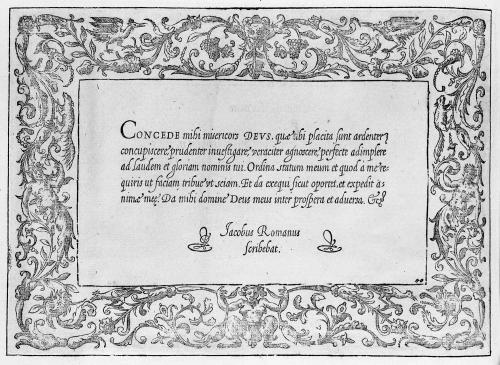 CONCEDE mihi misericors DEVS. quæ tibi placita sunt ardenter
concupiscere, prudenter investigare, veraciter agnoscere, perfecte adimplere
ad laudem et gloriam nominis tui. Ordina statum meum et quod a me re⸗
quiris ut faciam tribue ut sciam. Et da exequi sicut oportet, et expedit a⸗
nimæ meę. Da mihi domine Deus meus inter prospera et adversa. &c
Jacobus Romanus
scribebat.